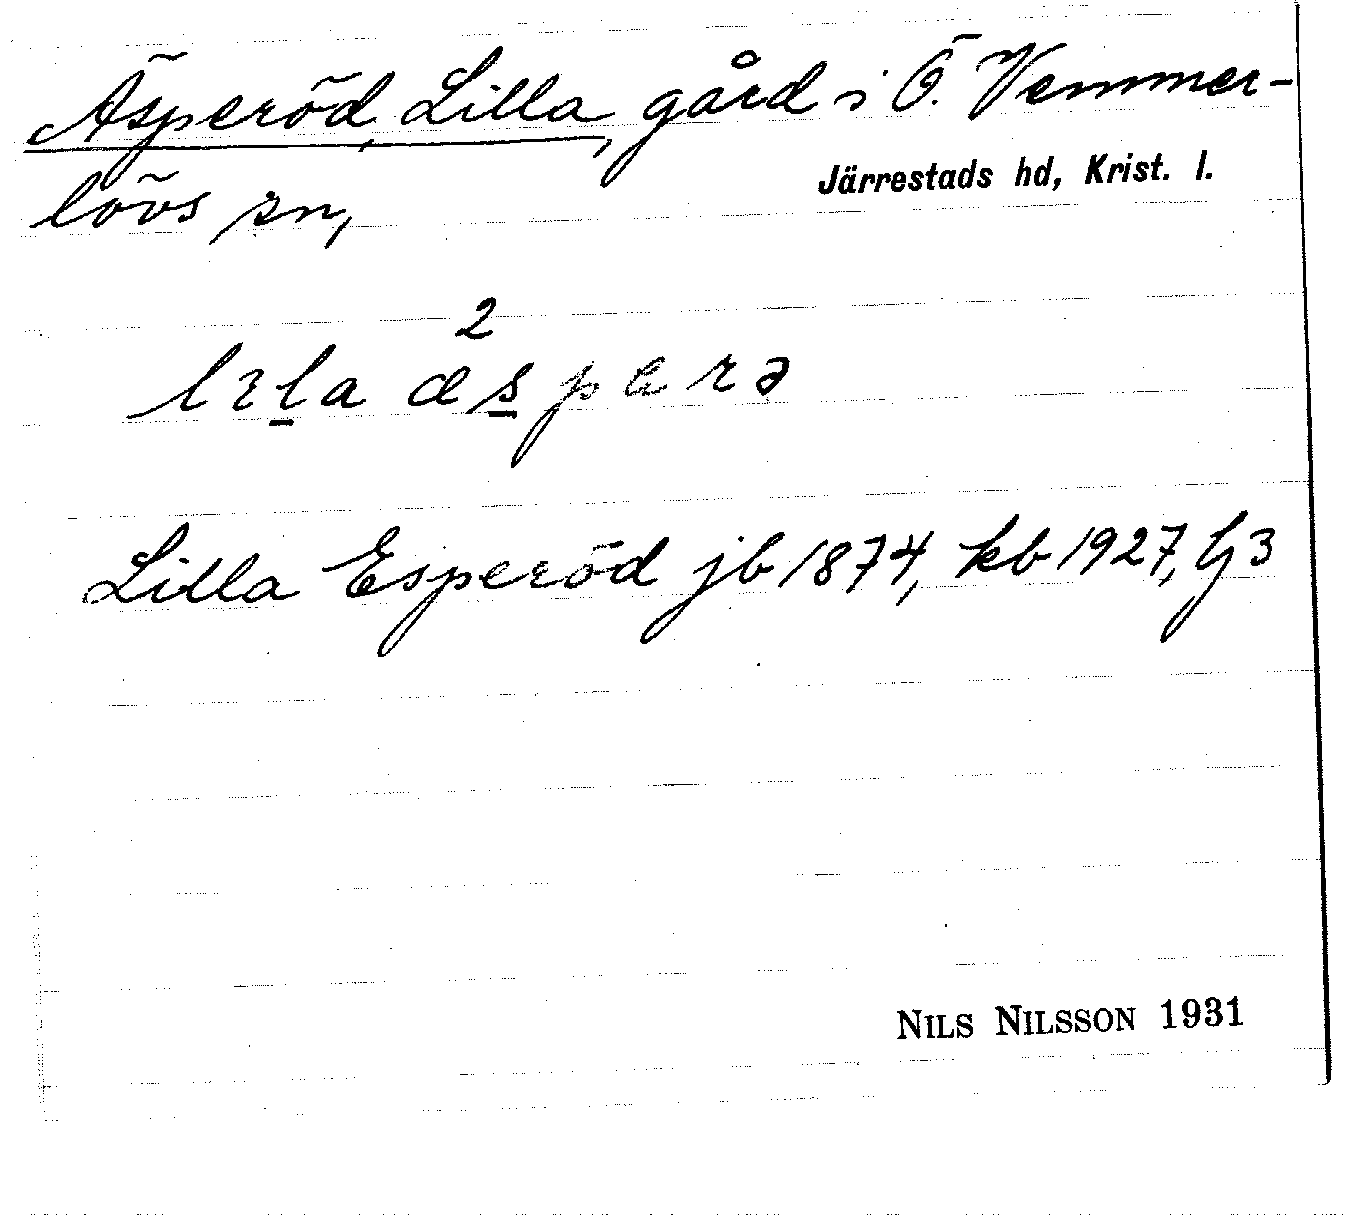 Äsperöd, Lilla, gård i Ö. Vemmer-
lövs sn,
Järrestads hd, Krist. l.
2
Lilla Esperöd jb 1874, kb 1927, G3
NILS NILSSON 1931